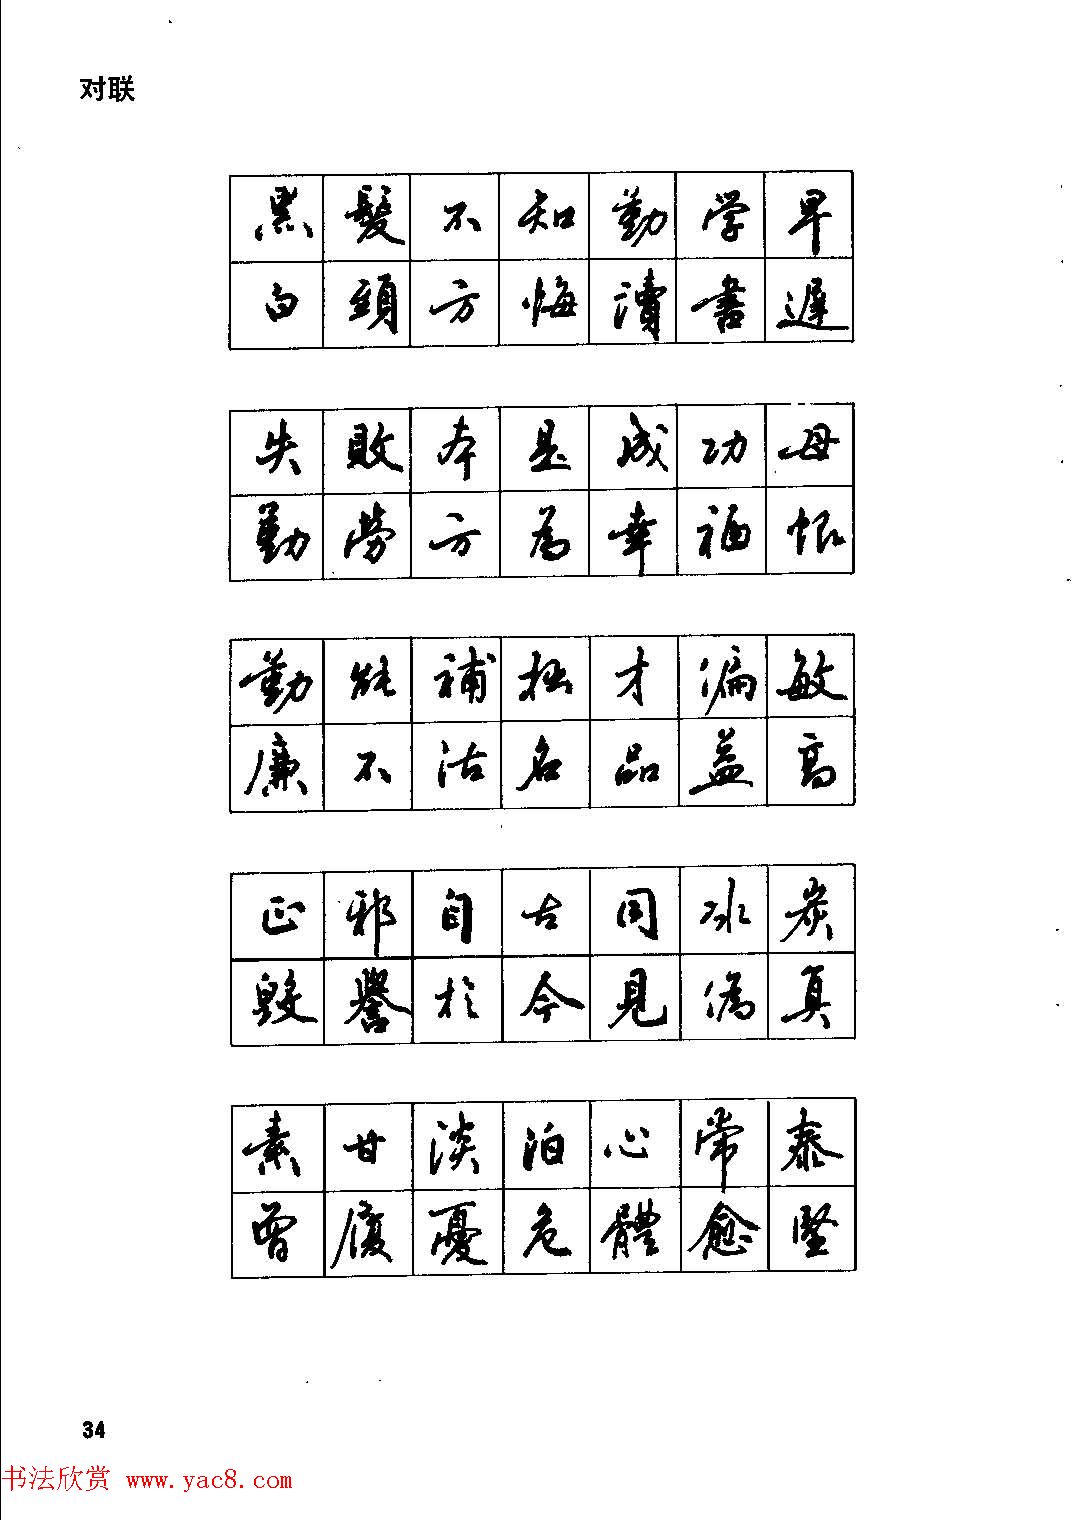 对联
黑髮不知勤学早
白頭方悔讀書遲
失敗本是成功母
勤劳方为幸福根
勤能補拙才偏敏
廉不沽名品益高
正邪自古同冰炭
毀譽於今見偽真
素甘淡泊心常泰
曾履憂危體愈堅
34
书法欣赏 www.yac8.com